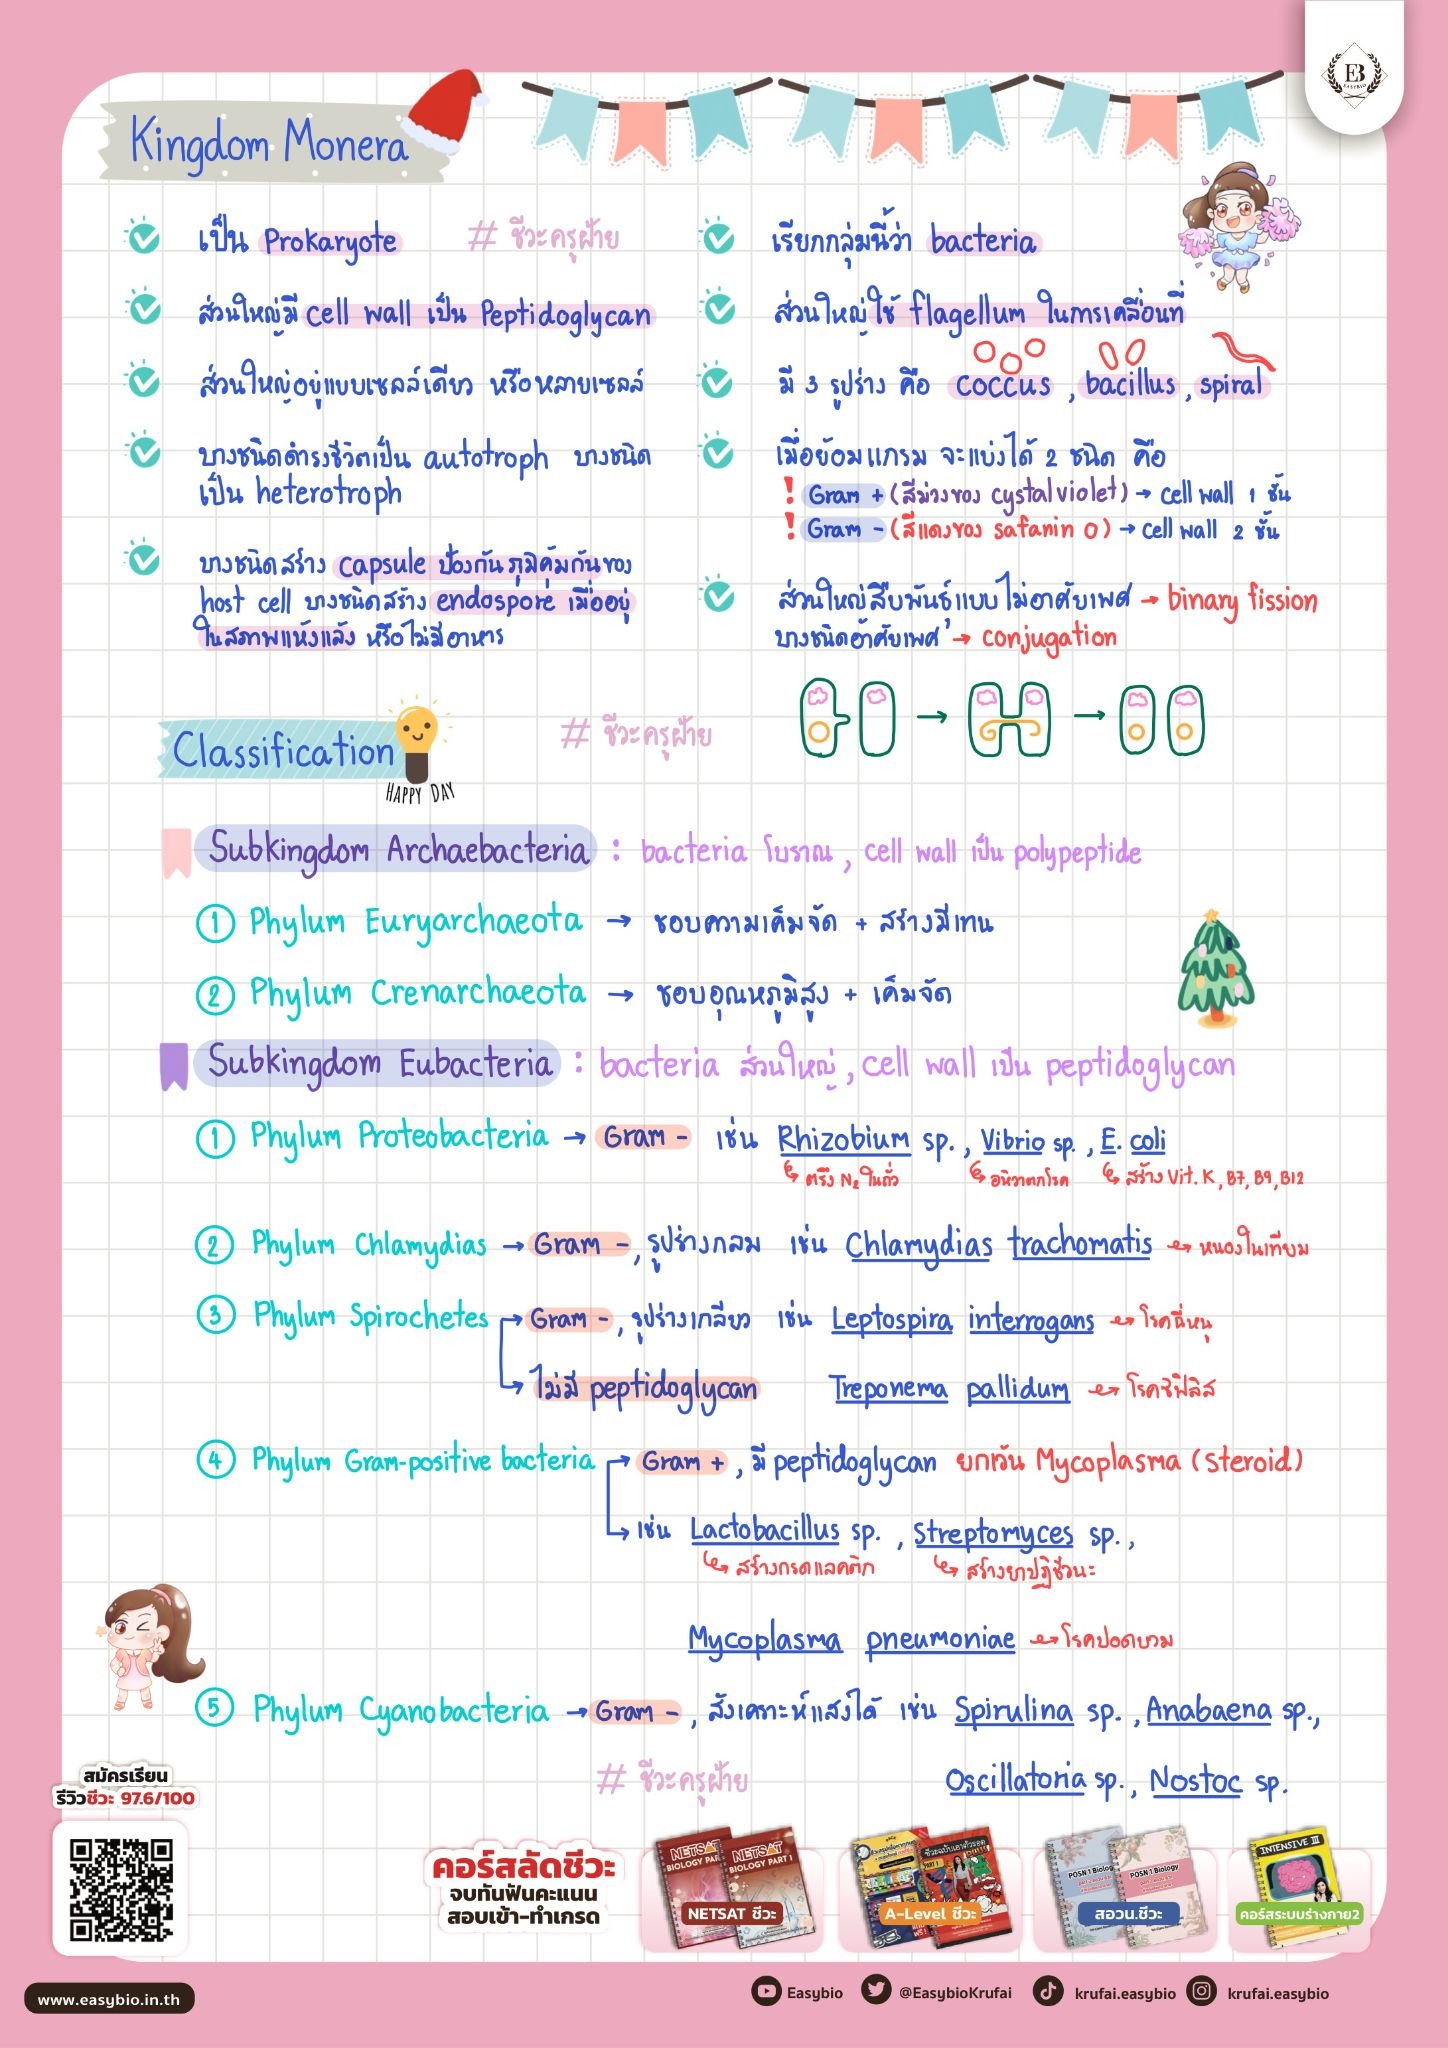 EB
EASYBIO
Kingdom Monera
เป็น Prokaryote
# ชีวะครูฝ้าย
ส่วนใหญ่มี cell wall เป็น Peptidoglycan
ส่วนใหญ่อยู่แบบเซลล์เดียว หรือหลายเซลล์
บางชนิดดำรงชีวิตเป็น autotroph บางชนิด
เป็น heterotroph
บางชนิดสร้าง capsule ป้องกันภูมิคุ้มกันของ
host cell บางชนิดสร้าง endospore เมื่ออยู่
ในสภาพแห้งแล้ง หรือไม่มีอาหาร
เรียกกลุ่มนี้ว่า bacteria
ส่วนใหญ่ใช้ flagellum ในการเคลื่อนที่
มี 3 รูปร่าง คือ coccus , bacillus , spiral
เมื่อย้อมแกรม จะแบ่งได้ 2 ชนิด คือ
! Gram + (สีม่วงของ cystal violet) → cell wall 1 ชั้น
! Gram - (สีแดงของ safanin O) → cell wall 2 ชั้น
ส่วนใหญ่สืบพันธุ์แบบไม่อาศัยเพศ → binary fission
บางชนิดอาศัยเพศ → conjugation
Classification
HAPPY DAY
# ชีวะครูฝ้าย
Subkingdom Archaebacteria : bacteria โบราณ , cell wall เป็น polypeptide
1 Phylum Euryarchaeota → ชอบความเค็มจัด + สร้างมีเทน
2 Phylum Crenarchaeota → ชอบอุณหภูมิสูง + เค็มจัด
Subkingdom Eubacteria : bacteria ส่วนใหญ่ , cell wall เป็น peptidoglycan
1 Phylum Proteobacteria → Gram - เช่น Rhizobium sp. , Vibrio sp. , E. coli
ตรึง N₂ ในถั่ว
อหิวาตกโรค
สร้าง Vit. K , B7, B9, B12
2 Phylum Chlamydias → Gram - , รูปร่างกลม เช่น Chlamydias trachomatis → หนองในเทียม
3 Phylum Spirochetes → Gram - , รูปร่างเกลียว เช่น Leptospira interrogans → โรคฉี่หนู
→ ไม่มี peptidoglycan Treponema pallidum → โรคซิฟิลิส
4 Phylum Gram-positive bacteria → Gram + , มี peptidoglycan ยกเว้น Mycoplasma (Steroid)
→ เช่น Lactobacillus sp. , Streptomyces sp. ,
สร้างกรดแลคติก
สร้างยาปฏิชีวนะ
Mycoplasma pneumoniae → โรคปอดบวม
5 Phylum Cyanobacteria → Gram - , สังเคราะห์แสงได้ เช่น Spirulina sp. , Anabaena sp.,
# ชีวะครูฝ้าย
Oscillatoria sp. , Nostoc sp.
สมัครเรียน
รีวิวชีวะ 97.6/100
คอร์สลัดชีวะ
จบทันฟันคะแนน
สอบเข้า-ทำเกรด
NETSAT
NETSAT
BIOLOGY PART 1
NETSAT ชีวะ
PART 1
A-Level ชีวะ
POSN 1 Biology
POSN 1 Biology
สอวน.ชีวะ
INTENSIVE III
คอร์สระบบร่างกาย2
www.easybio.in.th
Easybio
@EasybioKrufai
krufai.easybio
krufai.easybio